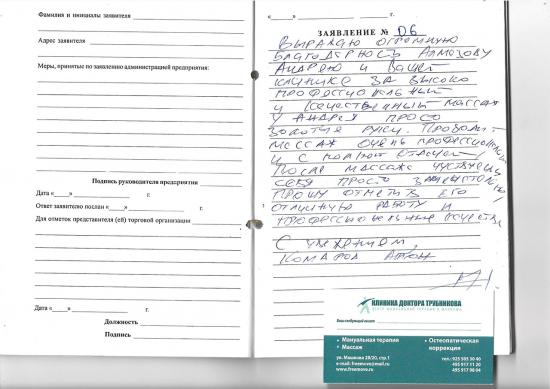 Фамилия и инициалы заявителя
Адрес заявителя
Меры, принятые по заявлению администрацией предприятия:
Подпись руководителя предприятия
Дата «___» г.
Ответ заявителю послан «___» г.
Для отметок представителя (ей) торговой организации
Дата «___» г.
Должность
Подпись
«___» г.
ЗАЯВЛЕНИЕ № 06
Выражаю огромную
благодарность Алмозову
Андрею и Вашей
клинике за высоко
профессиональный
и качественный массаж
у Андрея просто
золотые руки. Проводит
массаж очень профессионально
и с полной отдачей!
После массажа чувствуешь
себя просто
Прошу отметить его
отличную работу и
профессиональные качества
С уважением,
Комаров Антон
КЛИНИКА ДОКТОРА ТРУБНИКОВА
ЦЕНТР МАНУАЛЬНОЙ ТЕРАПИИ И МАССАЖА
Ваш следующий визит
Мануальная терапия
Массаж
Остеопатическая
коррекция
ул. Машкова 28/20, стр.1
e-mail: freemove@mail.ru
www.freemove.ru
тел.: 925 505 30 40
495 917 11 20
495 917 98 04